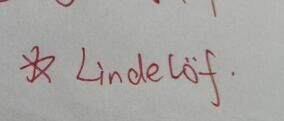 * Lindelöf.